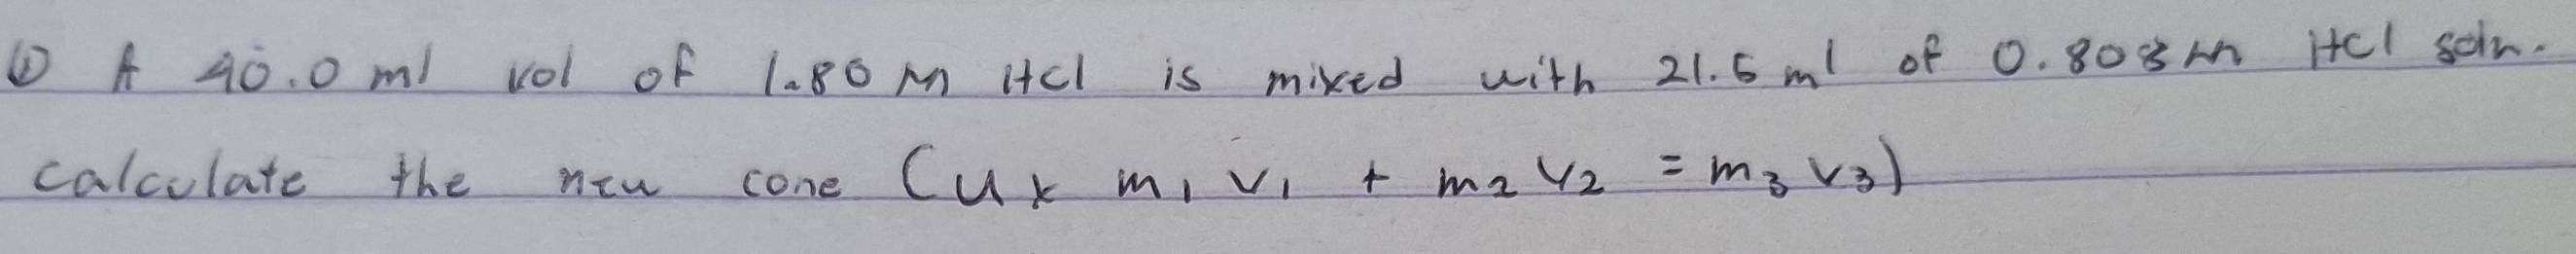 ① A 40.0 ml vol of 1.80 M HCl is mixed with 21.5 ml of 0.808 m HCl soln.
calculate the new conc (Ux m1 v1 + m2 v2 = m3 v3)